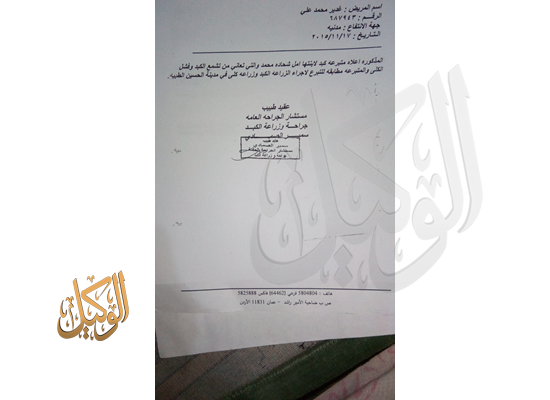 اسم المريض : غدير محمد علي
الرقم : ٦٨٧٩٤٣
جهة الانتفاع : مدنيه
التاريخ : ٢٠١٥/١١/١٧
المذكوره اعلاه متبرعه كبد لابنتها امل شحاده محمد والتي تعاني من تشمع الكبد وفشل
الكلى والمتبرعه مطابقه للتبرع لاجراء الزراعه الكبد وزراعه كلى في مدينة الحسين الطبيه.
عقيد طبيب
مستشار الجراحه العامه
جراحة وزراعة الكبد
سمير الصمادي
هاتف : 5804804 فرعي (64462) فاكس 5825888
ص ب ضاحية الأمير راشد - عمان 11831 الأردن
الوكيل
الوكيل